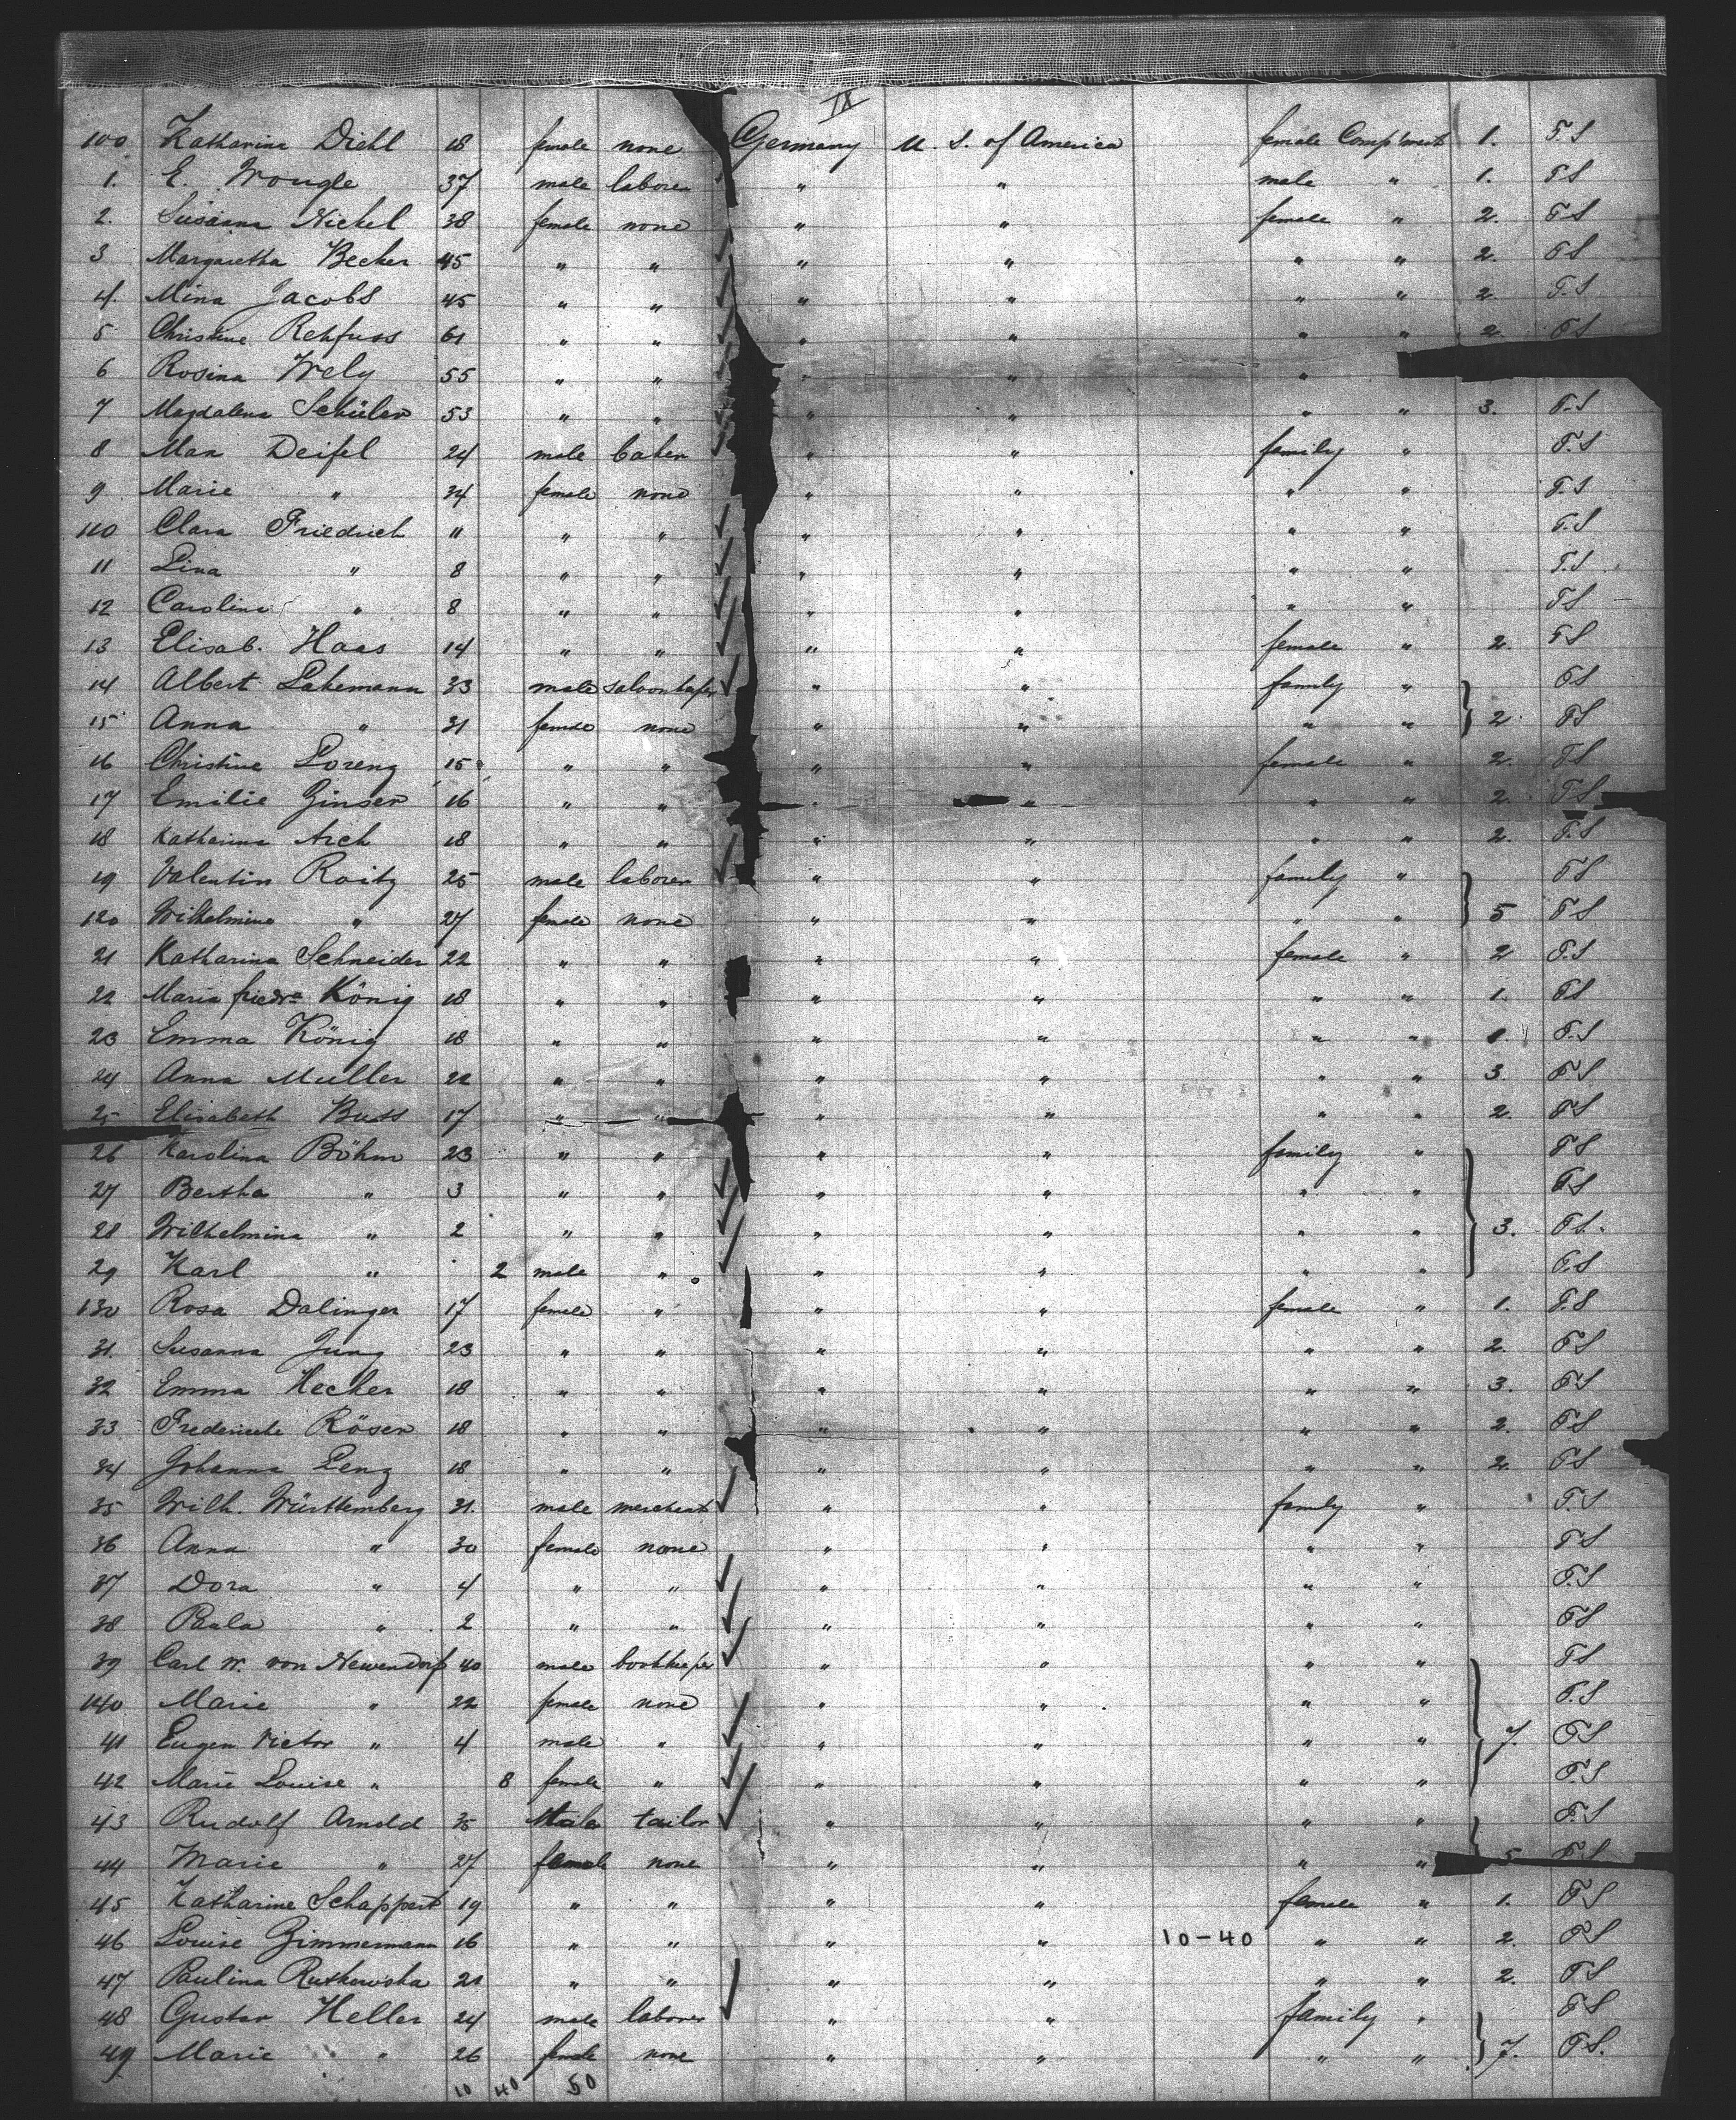 IX
100 Katharina Diehl 18 female none Germany U. S. of America female Compl'ment 1. T.S
1. E. Wongle 37 male laborer " " male " 1. T S
2. Susanna Nickel 38 female none " " female " 2. T S
3 Margaretha Becker 45 " " " " " " 2. T S
4. Mina Jacobs 45 " " " " " " 2. T.S
5 Christine Rehfuss 61 " " " " " " 2. T S
6 Rosina Wely 55 " " " " "
7 Magdalena Schüler 53 " " " " " " 3. T.S
8 Max Deifel 24 male baker " " family " T.S
9 Marie " 34 female none " " " " T.S
110 Clara Friedrich 11 " " " " " " T.S
11 Lina " 8 " " " " " " T.S
12 Carolina " 8 " " " " " " T S
13 Elisab. Haas 14 " " " " female " 2. T S
14 Albert Lakemann 33 male saloonkeeper " " family " T S
15 Anna " 31 female none " " " " 2. T S
16 Christine Lorenz 15 " " " " female " 2. T S
17 Emilie Zinser 16 " " " " " " 2. T S
18 Katharina Arch 18 " " " " " " 2. T.S
19 Valentin Roitz 25 male laborer " " family " T S
120 Wilhelmine " 27 female none " " " " 5 T S
21 Katharina Schneider 22 " " " " female " 2 T.S
22 Maria friedr. König 18 " " " " " " 1. T S
23 Emma König 18 " " " " " " 1. T.S
24 Anna Muller 22 " " " " " " 3. T S
25 Elisabeth Buss 17 " " " " " " 2. T S
26 Karolina Böhm 23 " " " " family " T S
27 Bertha " 3 " " " " " " T S
28 Wilhelmina " 2 " " " " " " 3. T S.
29 Karl " 2 male " " " " " T.S
130 Rosa Dalinger 17 female " " " female " 1. T.S
31. Susanna Jung 23 " " " " " " 2. T S
32 Emma Hecker 18 " " " " " " 3. T S
33 Frederieche Röser 18 " " " " " " 2. T S
34 Johanna Lenz 18 " " " " " " 2. T S
35 Wilh. Württemberg 31. male merchant " " family " T.S
36 Anna " 30 female none " " " " T S
37 Dora " 4 " " " " " " T.S
38 Paula " 2 " " " " " " T S
39 Carl W. von Newendorf 40 male bookkeeper " " " " T S
140 Marie " 22 female none " " " " T.S
41 Eugen Victor " 4 male " " " " " 7. T S
42 Marie Louise " 8 female " " " " " T.S
43 Rudolf Arnold 35 Male tailor " " " " T.S
44 Marie " 27 female none " " " " 5 T S
45 Katharine Schappert 19 " " " " female " 1. T S
46 Louise Zimmermann 16 " " " " 10-40 " " 2. T S
47 Paulina Rutkowska 21 " " " " " " 2. T S
48 Gustav Heller 24 male laborer " " family " T S
49 Marie " 26 female none " " " " 7. T S.
10 40 50